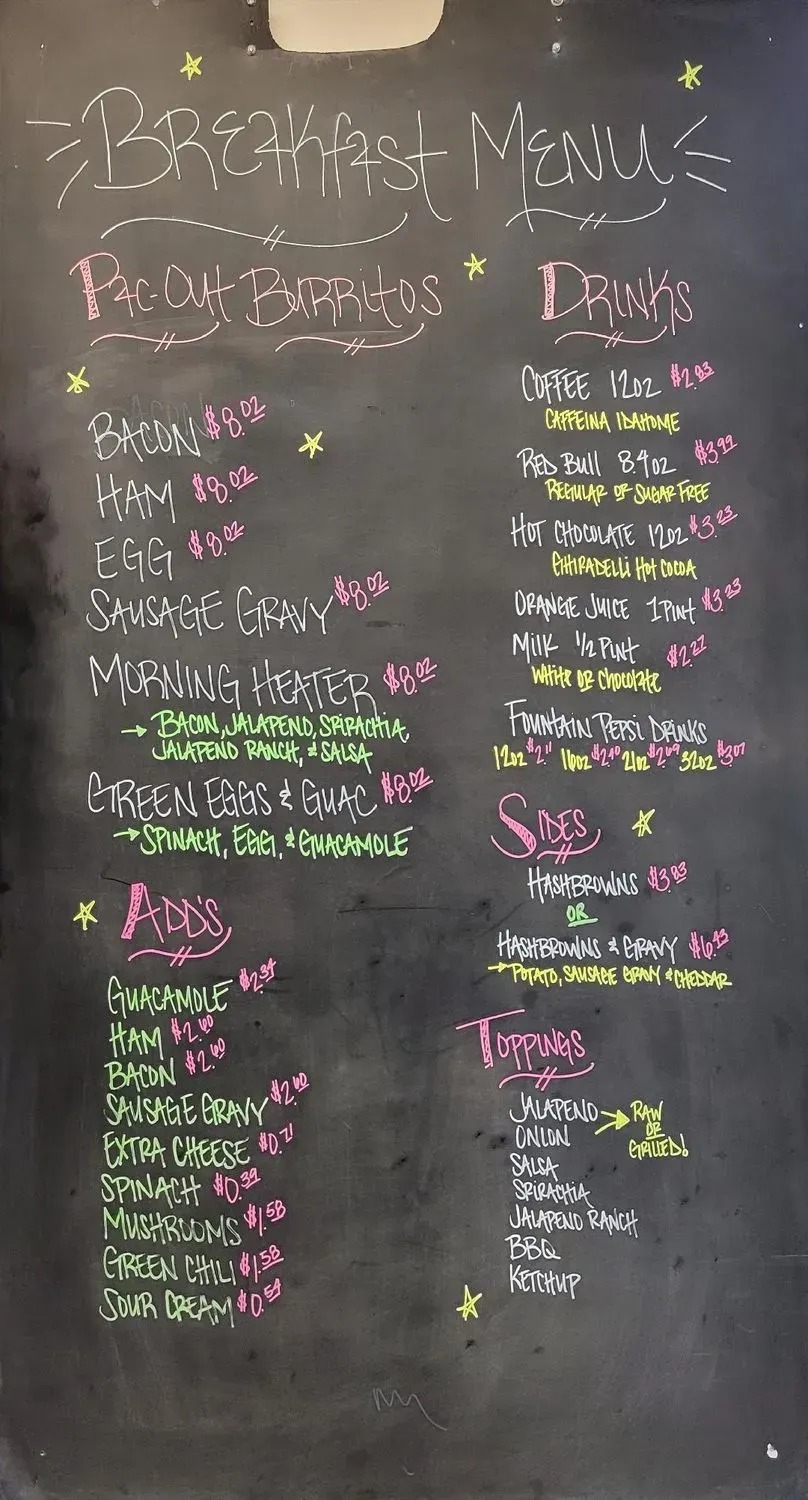 BREAKFAST MENU
PAC-OUT BURRITOS
BACON $8.02
HAM $8.02
EGG $8.02
SAUSAGE GRAVY $8.02
MORNING HEATER $8.02
→ BACON, JALAPENO, SRIRACHIA,
JALAPENO RANCH, & SALSA
GREEN EGGS & GUAC $8.02
→ SPINACH, EGG, & GUACAMOLE
ADD'S
GUACAMOLE $2.34
HAM $2.60
BACON $2.60
SAUSAGE GRAVY $2.60
EXTRA CHEESE $0.71
SPINACH $0.39
MUSHROOMS $1.58
GREEN CHILI $1.58
SOUR CREAM $0.54
DRINKS
COFFEE 12oz $2.83
CAFFEINA IDAHOME
RED BULL 8.4oz $3.99
REGULAR OR SUGAR FREE
HOT CHOCOLATE 12oz $3.23
GHIRADELLI HOT COCOA
ORANGE JUICE 1 PINT $3.23
MILK 1/2 PINT $2.27
WHITE OR CHOCOLATE
FOUNTAIN PEPSI DRINKS
12oz $2.11 16oz $2.40 21oz $2.69 32oz $3.07
SIDES
HASHBROWNS $3.83
OR
HASHBROWNS & GRAVY $6.43
→ POTATO, SAUSAGE GRAVY & CHEDDAR
TOPPINGS
JALAPENO
ONION
RAW
OR
GRILLED!
SALSA
SRIRACHIA
JALAPENO RANCH
BBQ
KETCHUP